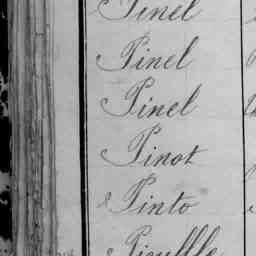 Pinel
Pinel
Pinel
Pinot
Pinto